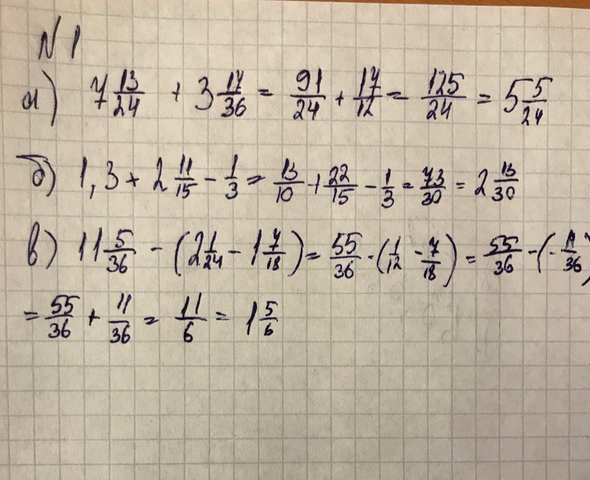 N 1
а) 7 13/24 + 3 17/36 = 91/24 + 17/12 = 125/24 = 5 5/24
б) 1,3 + 2 11/15 - 1/3 = 13/10 + 22/15 - 1/3 = 73/30 = 2 13/30
в) 11 5/36 - (2 1/24 - 1 7/18) = 55/36 - (1/12 - 7/18) = 55/36 - (-11/36)
= 55/36 + 11/36 = 11/6 = 1 5/6